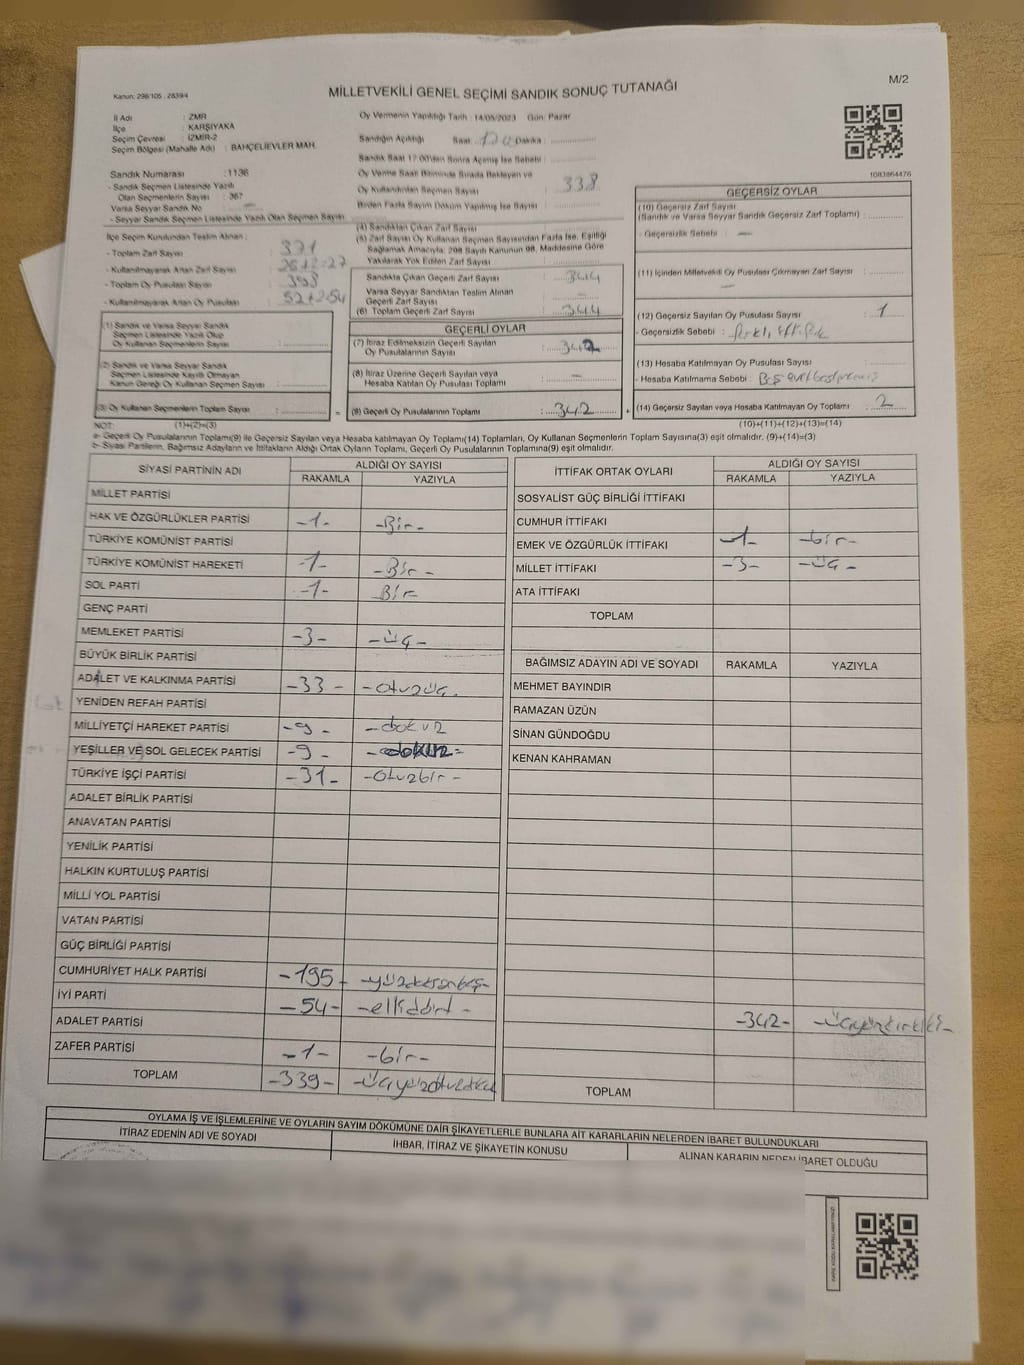 M/2
Kanun: 298/105 , 2839/4
MİLLETVEKİLİ GENEL SEÇİMİ SANDIK SONUÇ TUTANAĞI
İl Adı : ZMR
İlçe : KARŞIYAKA
Seçim Çevresi : İZMİR-2
Seçim Bölgesi (Mahalle Adı) : BAHÇELİEVLER MAH.
Oy Vermenin Yapıldığı Tarih : 14/05/2023 Gün: Pazar
Sandığın Açıldığı Saat Dakika :
Sandık Saat 17:00'den Sonra Açılmış İse Sebebi :
Oy Verme Saati Bitiminde Sırada Bekleyen ve
Oy Kullandırılan Seçmen Sayısı 338
Birden Fazla Sayım Döküm Yapılmış İse Sayısı :
1083864476
Sandık Numarası :1136
- Sandık Seçmen Listesinde Yazılı
Olan Seçmenlerin Sayısı : 367
Varsa Seyyar Sandık No : —
- Seyyar Sandık Seçmen Listesinde Yazılı Olan Seçmen Sayısı
İlçe Seçim Kurulundan Teslim Alınan ;
- Toplam Zarf Sayısı : 371
- Kullanılmayarak Artan Zarf Sayısı :
- Toplam Oy Pusulası Sayısı : 398
- Kullanılmayarak Artan Oy Pusulası : 52+2=54
(1) Sandık ve Varsa Seyyar Sandık
Seçmen Listesinde Yazılı Olup
Oy Kullanan Seçmenlerin Sayısı :
(2) Sandık ve Varsa Seyyar Sandık
Seçmen Listesinde Kayıtlı Olmayan
Kanun Gereği Oy Kullanan Seçmen Sayısı :
(3) Oy Kullanan Seçmenlerin Toplam Sayısı :
(4) Sandıktan Çıkan Zarf Sayısı :
(5) Zarf Sayısı Oy Kullanan Seçmen Sayısından Fazla İse, Eşitliği
Sağlamak Amacıyla; 298 Sayılı Kanunun 98. Maddesine Göre
Yakılarak Yok Edilen Zarf Sayısı :
Sandıkta Çıkan Geçerli Zarf Sayısı : 344
Varsa Seyyar Sandıktan Teslim Alınan
Geçerli Zarf Sayısı : —
(6) Toplam Geçerli Zarf Sayısı : 344
GEÇERLİ OYLAR
(7) İtiraz Edilmeksizin Geçerli Sayılan
Oy Pusulalarının Sayısı : 342
(8) İtiraz Üzerine Geçerli Sayılan veya
Hesaba Katılan Oy Pusulası Toplamı : —
(9) Geçerli Oy Pusulalarının Toplamı : 342
GEÇERSİZ OYLAR
(10) Geçersiz Zarf Sayısı
(Sandık ve Varsa Seyyar Sandık Geçersiz Zarf Toplamı) :
- Geçersizlik Sebebi : —
(11) İçinden Milletvekili Oy Pusulası Çıkmayan Zarf Sayısı :
—
(12) Geçersiz Sayılan Oy Pusulası Sayısı : 1
- Geçersizlik Sebebi :
(13) Hesaba Katılmayan Oy Pusulası Sayısı :
- Hesaba Katılmama Sebebi : Boş
(14) Geçersiz Sayılan veya Hesaba Katılmayan Oy Toplamı : 2
NOT: (1)+(2)=(3) (10)+(11)+(12)+(13)=(14)
a- Geçerli Oy Pusulalarının Toplamı(9) ile Geçersiz Sayılan veya Hesaba Katılmayan Oy Toplamı(14) Toplamları, Oy Kullanan Seçmenlerin Toplam Sayısına(3) eşit olmalıdır. (9)+(14)=(3)
b- Siyasi Partilerin, Bağımsız Adayların ve İttifakların Aldığı Ortak Oyların Toplamı, Geçerli Oy Pusulalarının Toplamına(9) eşit olmalıdır.
SİYASİ PARTİNİN ADI ALDIĞI OY SAYISI
RAKAMLA YAZIYLA
MİLLET PARTİSİ
HAK VE ÖZGÜRLÜKLER PARTİSİ -1- -Bir-
TÜRKİYE KOMÜNİST PARTİSİ
TÜRKİYE KOMÜNİST HAREKETİ -1- -Bir-
SOL PARTİ -1- Bir
GENÇ PARTİ
MEMLEKET PARTİSİ -3- -üç-
BÜYÜK BİRLİK PARTİSİ
ADALET VE KALKINMA PARTİSİ -33- -otuzüç.
YENİDEN REFAH PARTİSİ
MİLLİYETÇİ HAREKET PARTİSİ -9- -dokuz
YEŞİLLER VE SOL GELECEK PARTİSİ -9- -dokuz-
TÜRKİYE İŞÇİ PARTİSİ -31- -Otuzbir-
ADALET BİRLİK PARTİSİ
ANAVATAN PARTİSİ
YENİLİK PARTİSİ
HALKIN KURTULUŞ PARTİSİ
MİLLİ YOL PARTİSİ
VATAN PARTİSİ
GÜÇ BİRLİĞİ PARTİSİ
CUMHURİYET HALK PARTİSİ -195- -yüzdoksanbeş-
İYİ PARTİ -54- -ellidört-
ADALET PARTİSİ
ZAFER PARTİSİ -1- -bir-
TOPLAM -339- -üçyüzotuzdokuz
İTTİFAK ORTAK OYLARI ALDIĞI OY SAYISI
RAKAMLA YAZIYLA
SOSYALİST GÜÇ BİRLİĞİ İTTİFAKI
CUMHUR İTTİFAKI
EMEK VE ÖZGÜRLÜK İTTİFAKI -1- -bir-
MİLLET İTTİFAKI -3- -üç-
ATA İTTİFAKI
TOPLAM
BAĞIMSIZ ADAYIN ADI VE SOYADI RAKAMLA YAZIYLA
MEHMET BAYINDIR
RAMAZAN ÜZÜN
SİNAN GÜNDOĞDU
KENAN KAHRAMAN
-342- -üçyüzkırkiki-
TOPLAM
OYLAMA İŞ VE İŞLEMLERİNE VE OYLARIN SAYIM DÖKÜMÜNE DAİR ŞİKAYETLERLE BUNLARA AİT KARARLARIN NELERDEN İBARET BULUNDUKLARI
İTİRAZ EDENİN ADI VE SOYADI İHBAR, İTİRAZ VE ŞİKAYETİN KONUSU ALINAN KARARIN NEDEN İBARET OLDUĞU